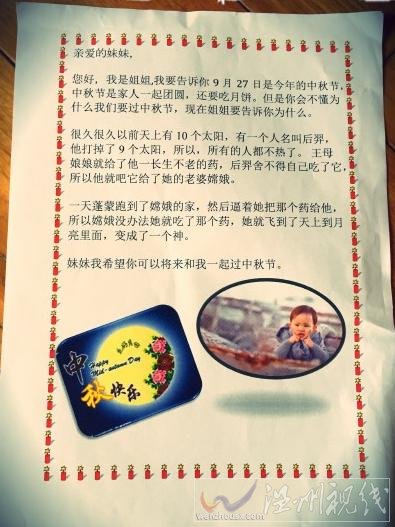 亲爱的妹妹,
您好，我是姐姐,我要告诉你 9 月 27 日是今年的中秋节,
中秋节是家人一起团圆，还要吃月饼。但是你会不懂为
什么我们要过中秋节，现在姐姐要告诉你为什么。
很久很久以前天上有 10 个太阳，有一个人名叫后羿，
他打掉了 9 个太阳，所以，所有的人都不热了。 王母
娘娘就给了他一长生不老的药，后羿舍不得自己吃了它，
所以他就吧它给了她的老婆嫦娥。
一天蓬蒙跑到了嫦娥的家，然后逼着她把那个药给他，
所以嫦娥没办法她就吃了那个药，她就飞到了天上到月
亮里面，变成了一个神。
妹妹我希望你可以将来和我一起过中秋节。
中秋快乐
Happy
Mid-autumn Day
温州视线
wenzhousx.com